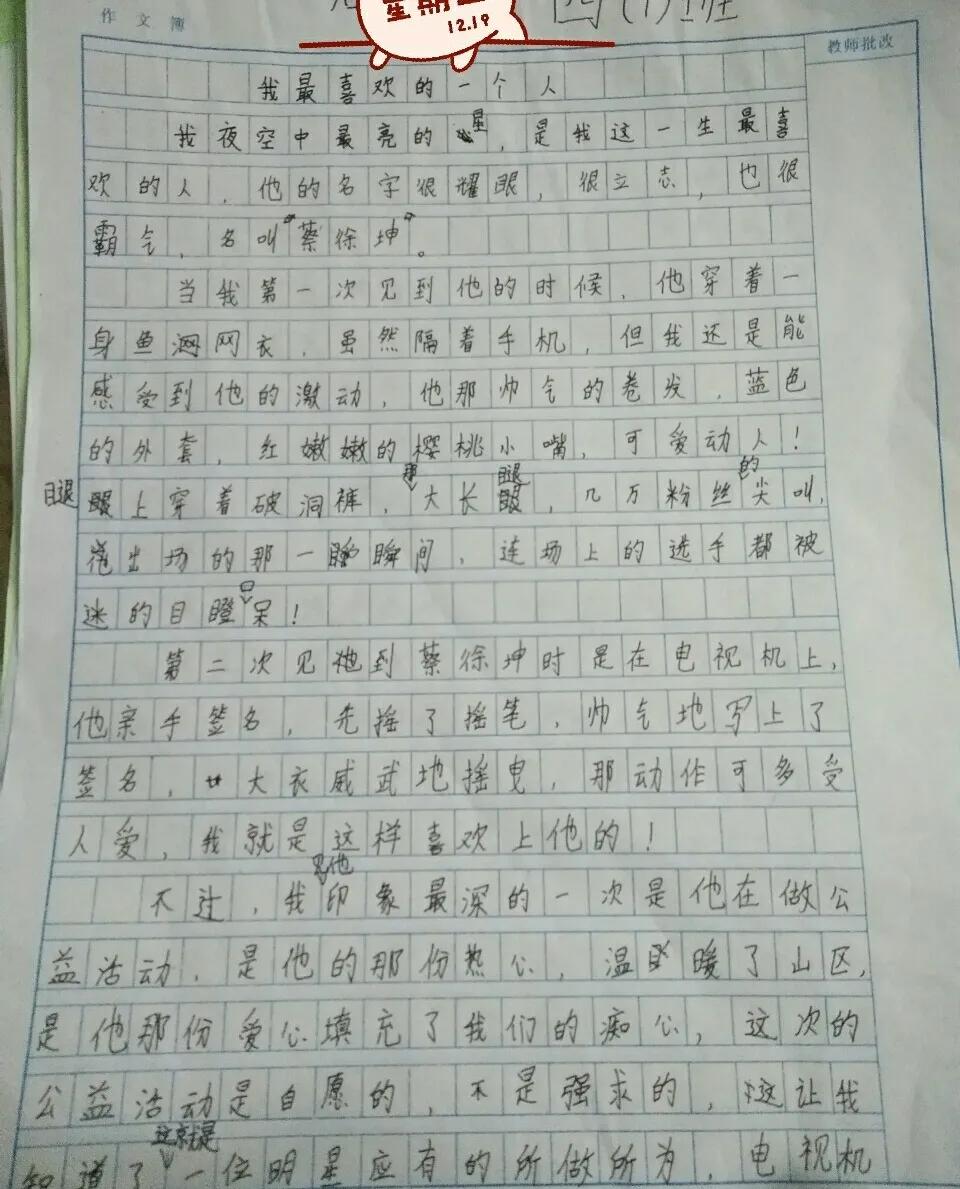 作文簿
星期
12.19
四(1)班
教师批改
我最喜欢的一个人
我夜空中最亮的星，是我这一生最喜
欢的人，他的名字很耀眼，很立志，也很
霸气，名叫“蔡徐坤”。
当我第一次见到他的时候，他穿着一
身鱼网衣，虽然隔着手机，但我还是能
感受到他的激动，他那帅气的卷发，蓝色
的外套，红嫩嫩的樱桃小嘴，可爱动人！
腿上穿着破洞裤，那大长腿，几万粉丝的尖叫，
出场的那一瞬间，连场上的选手都被
迷的目瞪口呆！
第二次见到蔡徐坤时是在电视机上，
他亲手签名，先摇了摇笔，帅气地写上了
签名，大衣威武地摇曳，那动作可多受
人爱，我就是这样喜欢上他的！
不过，我见他印象最深的一次是他在做公
益活动，是他的那份热心，温暖了山区，
是他那份爱心填充了我们的痴心，这次的
公益活动是自愿的，不是强求的，这让我
知道了这就是一位明星应有的所做所为，电视机